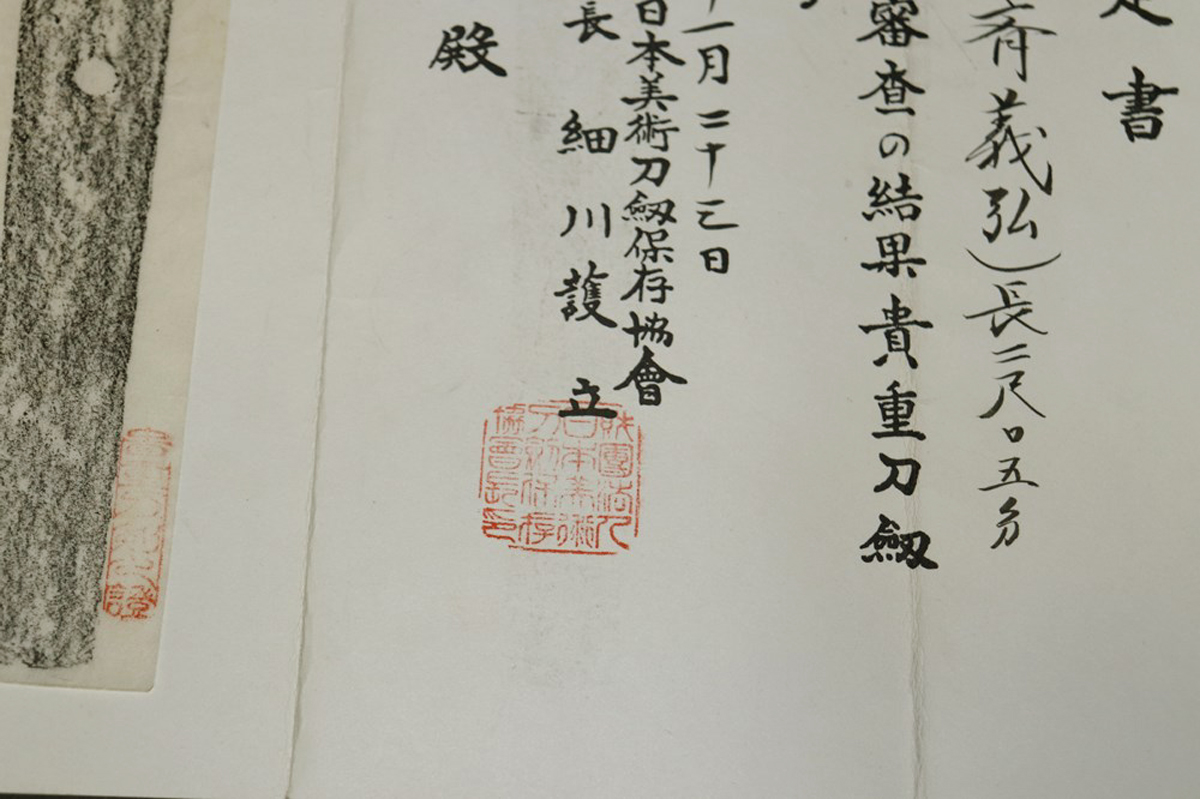 書
斎義弘)長二尺〇五分
審査の結果貴重刀劔
一月二十三日
日本美術刀劔保存協會
長 細川護立
殿
財團法人
日本美術
刀劔保存
協會長印